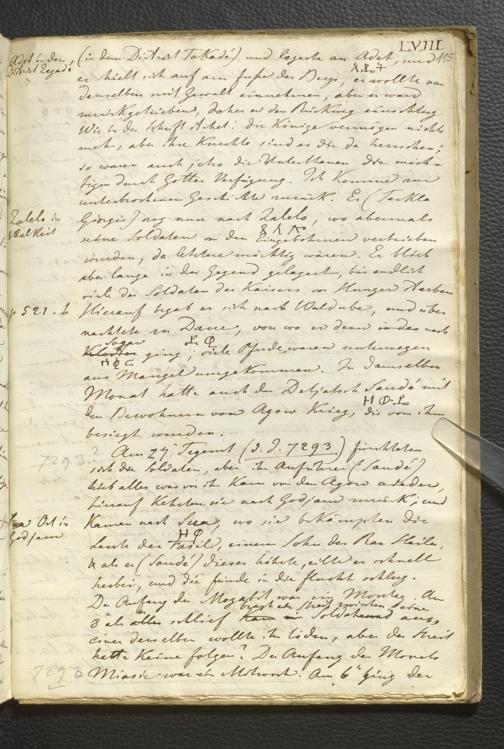 LVIII
115
Adet in dem
District Zegadé
(in dem District Takadé) und lagerte am Adet, und
er hielt sich auf am Fuße des Bergs, er wollte an
denselben mit Gewalt einnehmen, aber er ward
zurückgetrieben, daher er den Rückzug einschlug
Wie in der Schrift steht: die Könige vermögen nichts
mehr, aber ihre Knechte sind es die da herrschen;
so waren auch jetzo die Unterthanen die mäch-
tigen durch Gottes Verfügung. Ich komme zur
unterbrochenen Geschichte zurück. Er (Teckla
Zalelo in
Walkeit
Giorgis) zog nun nach Zalelo, wo abermals
seine Soldaten von den Eingebohrnen vertrieben
wurden, da letztere mächtig waren. Er blieb
aber lange in der Gegend gelagert, bis endlich
viele der Soldaten des Kaisers vor Hunger starben
p. 521. b
Hierauf begab er sich nach Walduba, und über-
nachtete in Daue, von wo er denn in das nach
Sogar
ging; viele Pferde waren unterwegen
aus Mangel umgekommen. In demselben
Monat hatte auch der Detjatsch Saudé mit
den Bewohnern vom Agow Krieg, die von ihm
besiegt wurden.
7293.?
Am 27 Tegemt (d. J. 7293) fürchteten
sich die Soldaten, aber ihr Anführer (Saudé)
hieb alles was ihm kam von den Agow nieder,
hierauf kehrten sie nach Godjam zurück, und
Ort in
Godjam
kamen nach, wo sie bekämpften die
Leute des Fasil, einem Sohn des Ras Hailu,
& als er (Saudé) dieses hörte, eilte er schnell
herbei, und die Feinde in die Flucht schlug.
Der Anfang des Magabit war ein Montag. Am
3 als alles schlief seine Soldaten aus,
einer derselben wollte ihn töden, aber der Streit
hatte keine Folgen. Der Anfang des Monats
7293
Miasia war ein Mittwoch. Am 6 ging der